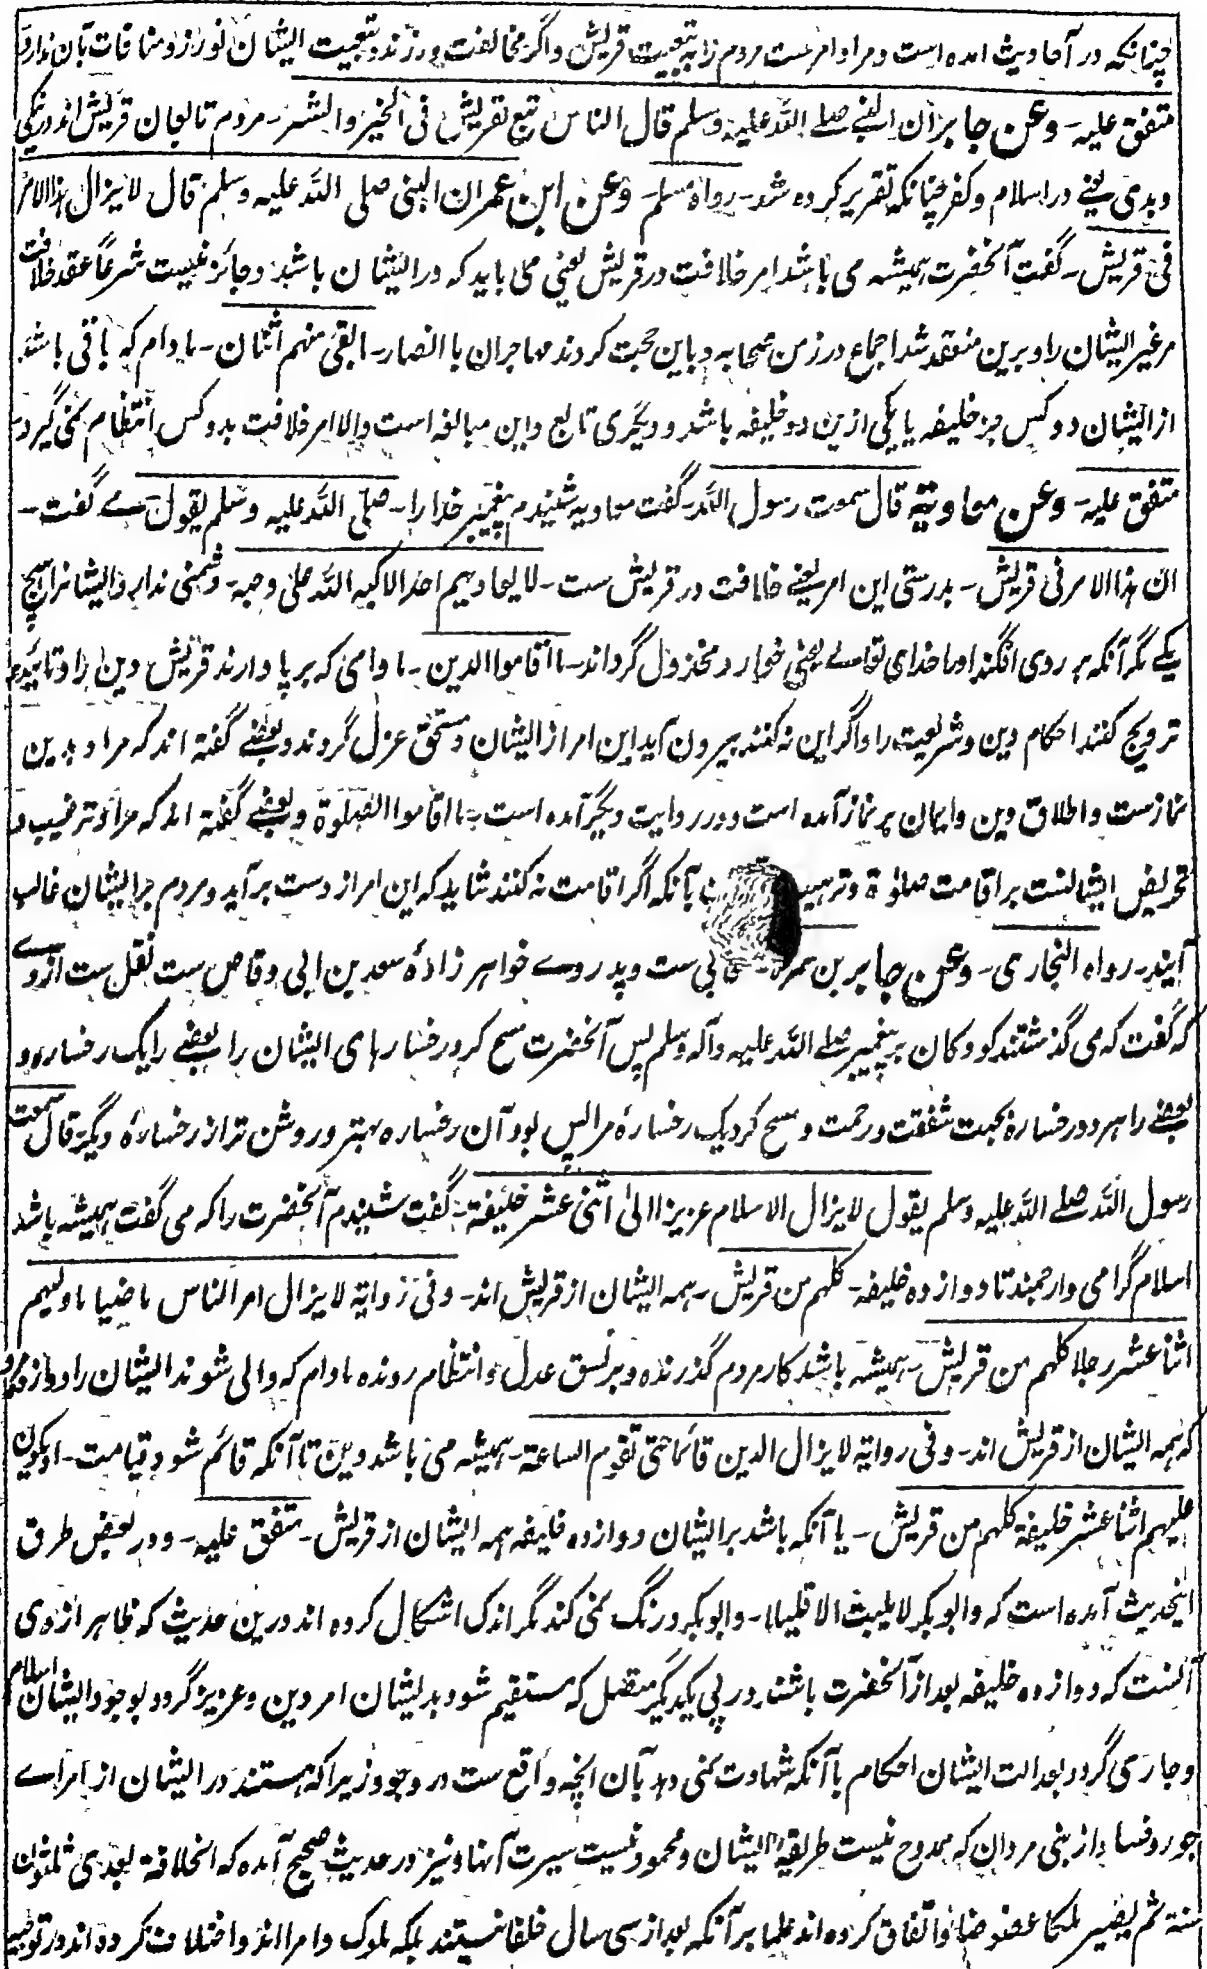 چنانکه در آحادیث آمده است و مراد امرست مردم را به تبعیت قریش و اگر مخالفت ورزند و تبعیت ایشان نورزند منافات بآن ندارد
متفق علیه۔ وعن جابر ان النبی صلے اللہ علیہ وسلم قال الناس تبع لقریش فی الخیر والشر۔ مردم تابعان قریش اند در نیکی
و بدی یعنے در اسلام و کفر چنانکه تقریر کرده شد۔ رواه مسلم۔ وعن ابن عمران النبی صلی اللہ علیہ وسلم قال لا یزال ہذا الامر
فی قریش۔ گفت آنحضرت ہمیشہ می باشد امر خلافت در قریش یعنی می باید که در ایشان باشد و جائز نیست شرعاً عقد خلافت
مر غیر ایشان را و برین منعقد شد اجماع در زمن صحابه و باین حجت کردند مہاجران با انصار۔ مابقی منہم اثنان۔ مادام که باقی باشد
از ایشان دو کس جز خلیفه یا یکی ازین دو خلیفه باشد و دیگری تابع و این مبالغه است والا امر خلافت بدو کس انتظام نمی گیرد
متفق علیہ۔ وعن معاویة قال سمعت رسول اللہ۔ گفت معاویه شنیدم پیغمبر خدا را۔ صلی اللہ علیہ وسلم یقول۔ مے گفت۔
ان ہذا الامر فی قریش۔ بدرستی این امر یعنے خلافت در قریش ست۔ لا یعادیہم احد الا کبہ اللہ علی وجہہ۔ دشمنی ندارد ایشانرا ہیچ
یکے مگر آنکه بر روی افگند او را خدای تعالے یعنی خوار و مخذول گرداند۔ ما اقاموا الدین۔ مادامی که برپا دارند قریش دین را و تائید و
ترویج کنند احکام دین و شریعت را و اگر این نه کنند بیرون آید این امر از ایشان و مستحق عزل گردند و بعضے گفته اند که مراد بدین
نمازست و اطلاق دین و ایمان بر نماز آمده است و در روایت دیگر آمده است۔ ما اقاموا الصلوة و بعضے گفته اند که مراد ترغیب و
تحریض ایشانست بر اقامت صلوٰة و ترہیب بآنکه اگر اقامت نه کنند شاید که این امر از دست برآید و مردم بر ایشان غالب
آیند۔ رواه البخاری۔ وعن جابر بن سمرة۔ صحابی ست و پدر وے خواہر زادۂ سعد بن ابی وقاص ست نقل ست از وے
که گفت که می گذشتند کودکان بر پیغمبر صلے اللہ علیہ وآلہ وسلم پس آنحضرت مسح کرد رخسارہای ایشان را بعضے را یک رخساره و
بعضے را ہر دو رخساره بجہت شفقت و رحمت و مسح کرد یک رخسارۂ مرا پس بود آن رخساره بہتر و روشن تر از رخسارۂ دیگر قال سمعت
رسول اللہ صلے اللہ علیہ وسلم یقول لا یزال الاسلام عزیزا الیٰ اثنی عشر خلیفة۔ گفت شنیدم آنحضرت را که می گفت ہمیشہ باشد
اسلام گرامی و ارجمند تا دوازده خلیفه۔ کلہم من قریش۔ ہمه ایشان از قریش اند۔ وفی روایة لا یزال امر الناس ماضیا ما ولیہم
اثنا عشر رجلا کلہم من قریش۔ ہمیشہ باشد کار مردم گذرنده و بر نسق عدل و انتظام رونده مادام که والی شوند ایشان را دوازده مرد
که ہمه ایشان از قریش اند۔ وفی روایة لا یزال الدین قائما حتی تقوم الساعة۔ ہمیشہ می باشد دین تا آنکه قائم شود قیامت۔ او یکون
علیہم اثنا عشر خلیفة کلہم من قریش۔ یا آنکه باشد بر ایشان دوازده خلیفه ہمه ایشان از قریش۔ متفق علیہ۔ و در بعض طرق
اینحدیث آمده است که وابو بکر لا یلبث الا قلیلا۔ وابو بکر درنگ نمی کند مگر اندک اشکال کرده اند درین حدیث که ظاہر از وی
آنست که دوازده خلیفه بعد از آنحضرت باشند در پی یکدیگر متصل که مستقیم شود بدیشان امر دین و عزیز گردد بوجود ایشان اسلام
و جاری گردد بعدالت ایشان احکام با آنکه شہادت نمی دہد بآن انچه واقع ست در وجود زیرا که ہستند در ایشان از امراے
جور و فساد از بنی مردان که ممدوح نیست طریقہ ایشان و محمود نیست سیرت آنہا و نیز در حدیث صحیح آمده که الخلافة بعدی ثلثون
سنة ثم یصیر ملکا عضوضا و اتفاق کرده اند علما بر آنکه بعد از سی سال خلفا نیستند بلکه ملوک و امرا اند و اختلاف کرده اند در توجیه